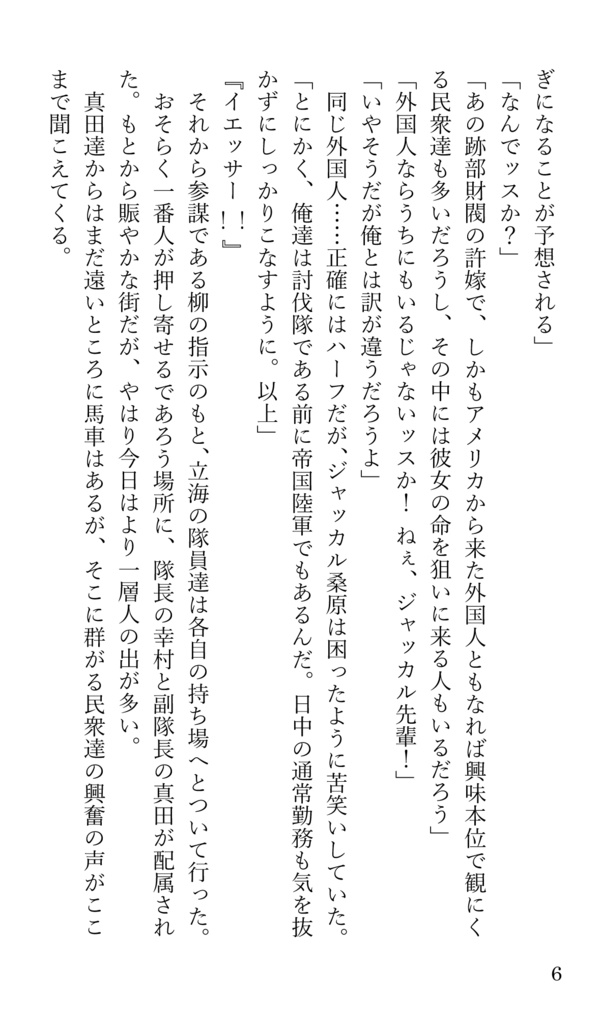 ぎになることが予想される」
「なんでッスか？」
「あの跡部財閥の許嫁で、しかもアメリカから来た外国人ともなれば興味本位で観にく
る民衆達も多いだろうし、その中には彼女の命を狙いに来る人もいるだろう」
「外国人ならうちにもいるじゃないッスか！ ねぇ、ジャッカル先輩！」
「いやそうだが俺とは訳が違うだろうよ」
同じ外国人……正確にはハーフだが、ジャッカル桑原は困ったように苦笑いしていた。
「とにかく、俺達は討伐隊である前に帝国陸軍でもあるんだ。日中の通常勤務も気を抜
かずにしっかりこなすように。以上」
『イエッサー！！』
それから参謀である柳の指示のもと、立海の隊員達は各自の持ち場へとついて行った。
おそらく一番人が押し寄せるであろう場所に、隊長の幸村と副隊長の真田が配属され
た。もとから賑やかな街だが、やはり今日はより一層人の出が多い。
真田達からはまだ遠いところに馬車はあるが、そこに群がる民衆達の興奮の声がここ
まで聞こえてくる。
6